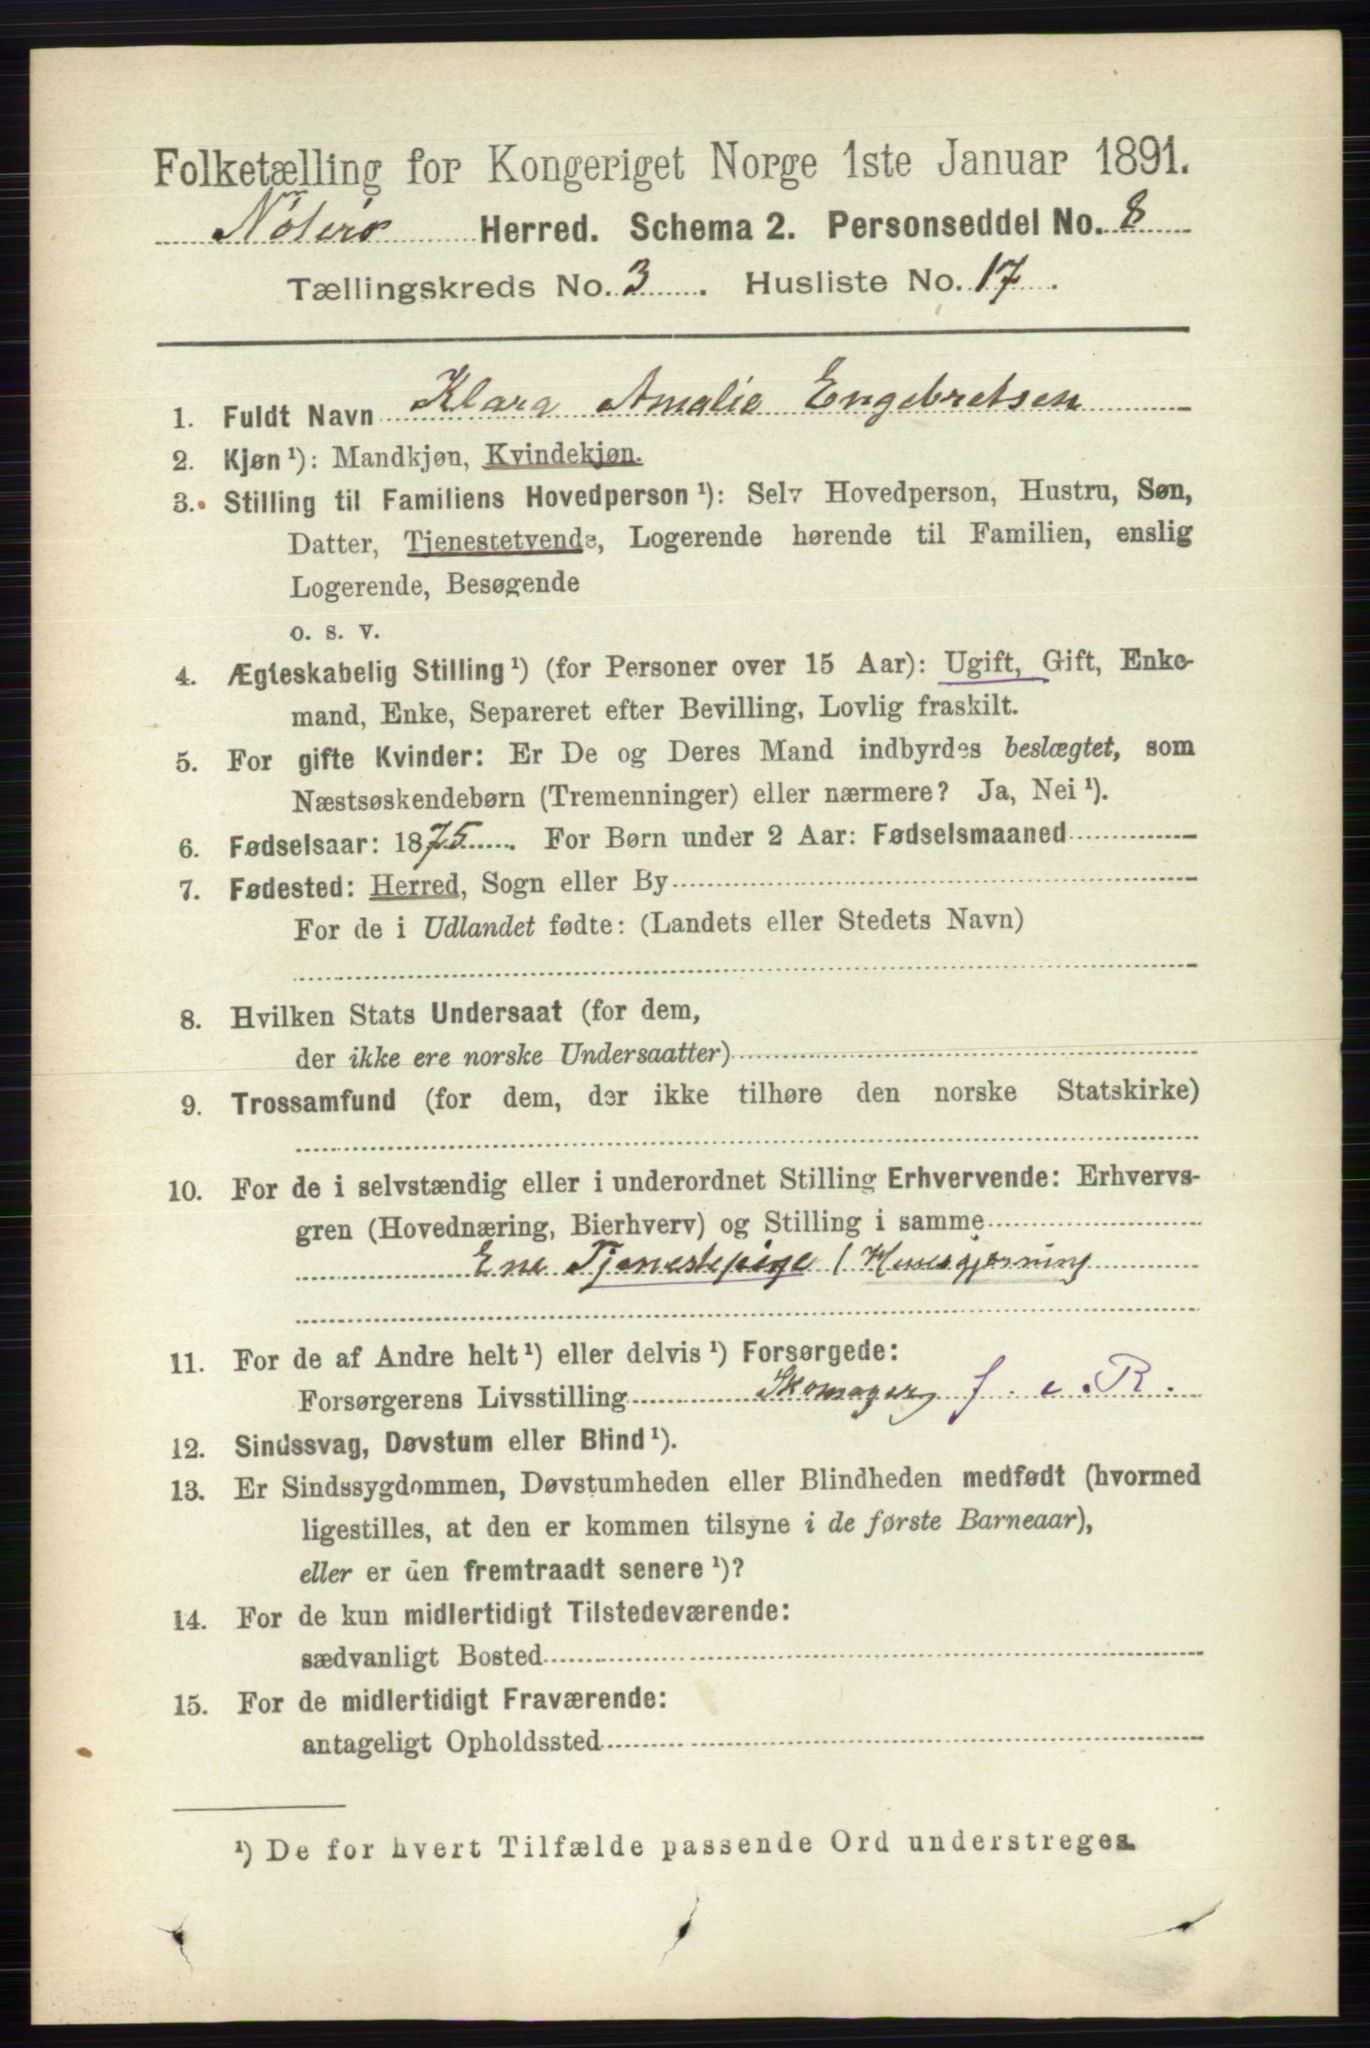 Folketælling for Kongeriget Norge 1ste Januar 1891.
Nøterø Herred. Schema 2. Personseddel No. 8
Tællingskreds No. 3. Husliste No. 17.
1. Fuldt Navn Klara Amalie Engebretsen
2. Kjøn ¹): Mandkjøn, Kvindekjøn.
3. Stilling til Familiens Hovedperson ¹): Selv Hovedperson, Hustru, Søn,
Datter, Tjenestetyende, Logerende hørende til Familien, enslig
Logerende, Besøgende
o. s. v.
4. Ægteskabelig Stilling ¹) (for Personer over 15 Aar): Ugift, Gift, Enke-
mand, Enke, Separeret efter Bevilling, Lovlig fraskilt.
5. For gifte Kvinder: Er De og Deres Mand indbyrdes beslægtet, som
Næstsøskendebørn (Tremenninger) eller nærmere? Ja, Nei ¹).
6. Fødselsaar: 1875. For Børn under 2 Aar: Fødselsmaaned
7. Fødested: Herred, Sogn eller By
For de i Udlandet fødte: (Landets eller Stedets Navn)
8. Hvilken Stats Undersaat (for dem,
der ikke ere norske Undersaatter)
9. Trossamfund (for dem, der ikke tilhøre den norske Statskirke)
10. For de i selvstændig eller i underordnet Stilling Erhvervende: Erhvervs-
gren (Hovednæring, Bierhverv) og Stilling i samme
Ene Tjenestepige / Huusgjerning
11. For de af Andre helt ¹) eller delvis ¹) Forsørgede:
Forsørgerens Livsstilling Skomager f. e. R.
12. Sindssvag, Døvstum eller Blind ¹).
13. Er Sindssygdommen, Døvstumheden eller Blindheden medfødt (hvormed
ligestilles, at den er kommen tilsyne i de første Barneaar),
eller er den fremtraadt senere ¹)?
14. For de kun midlertidigt Tilstedeværende:
sædvanligt Bosted
15. For de midlertidigt Fraværende:
antageligt Opholdssted
¹) De for hvert Tilfælde passende Ord understreges.